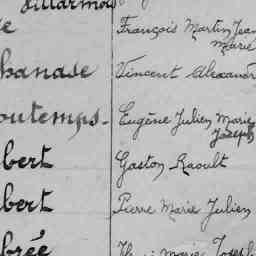 Villarmois
e François Martin Jean
Marie
hanase Vincent Alexandre
outemps. Eugène Julien Marie
Joseph
bert Gaston Raoult
bert Pierre Marie Julien
brée Marie Joseph